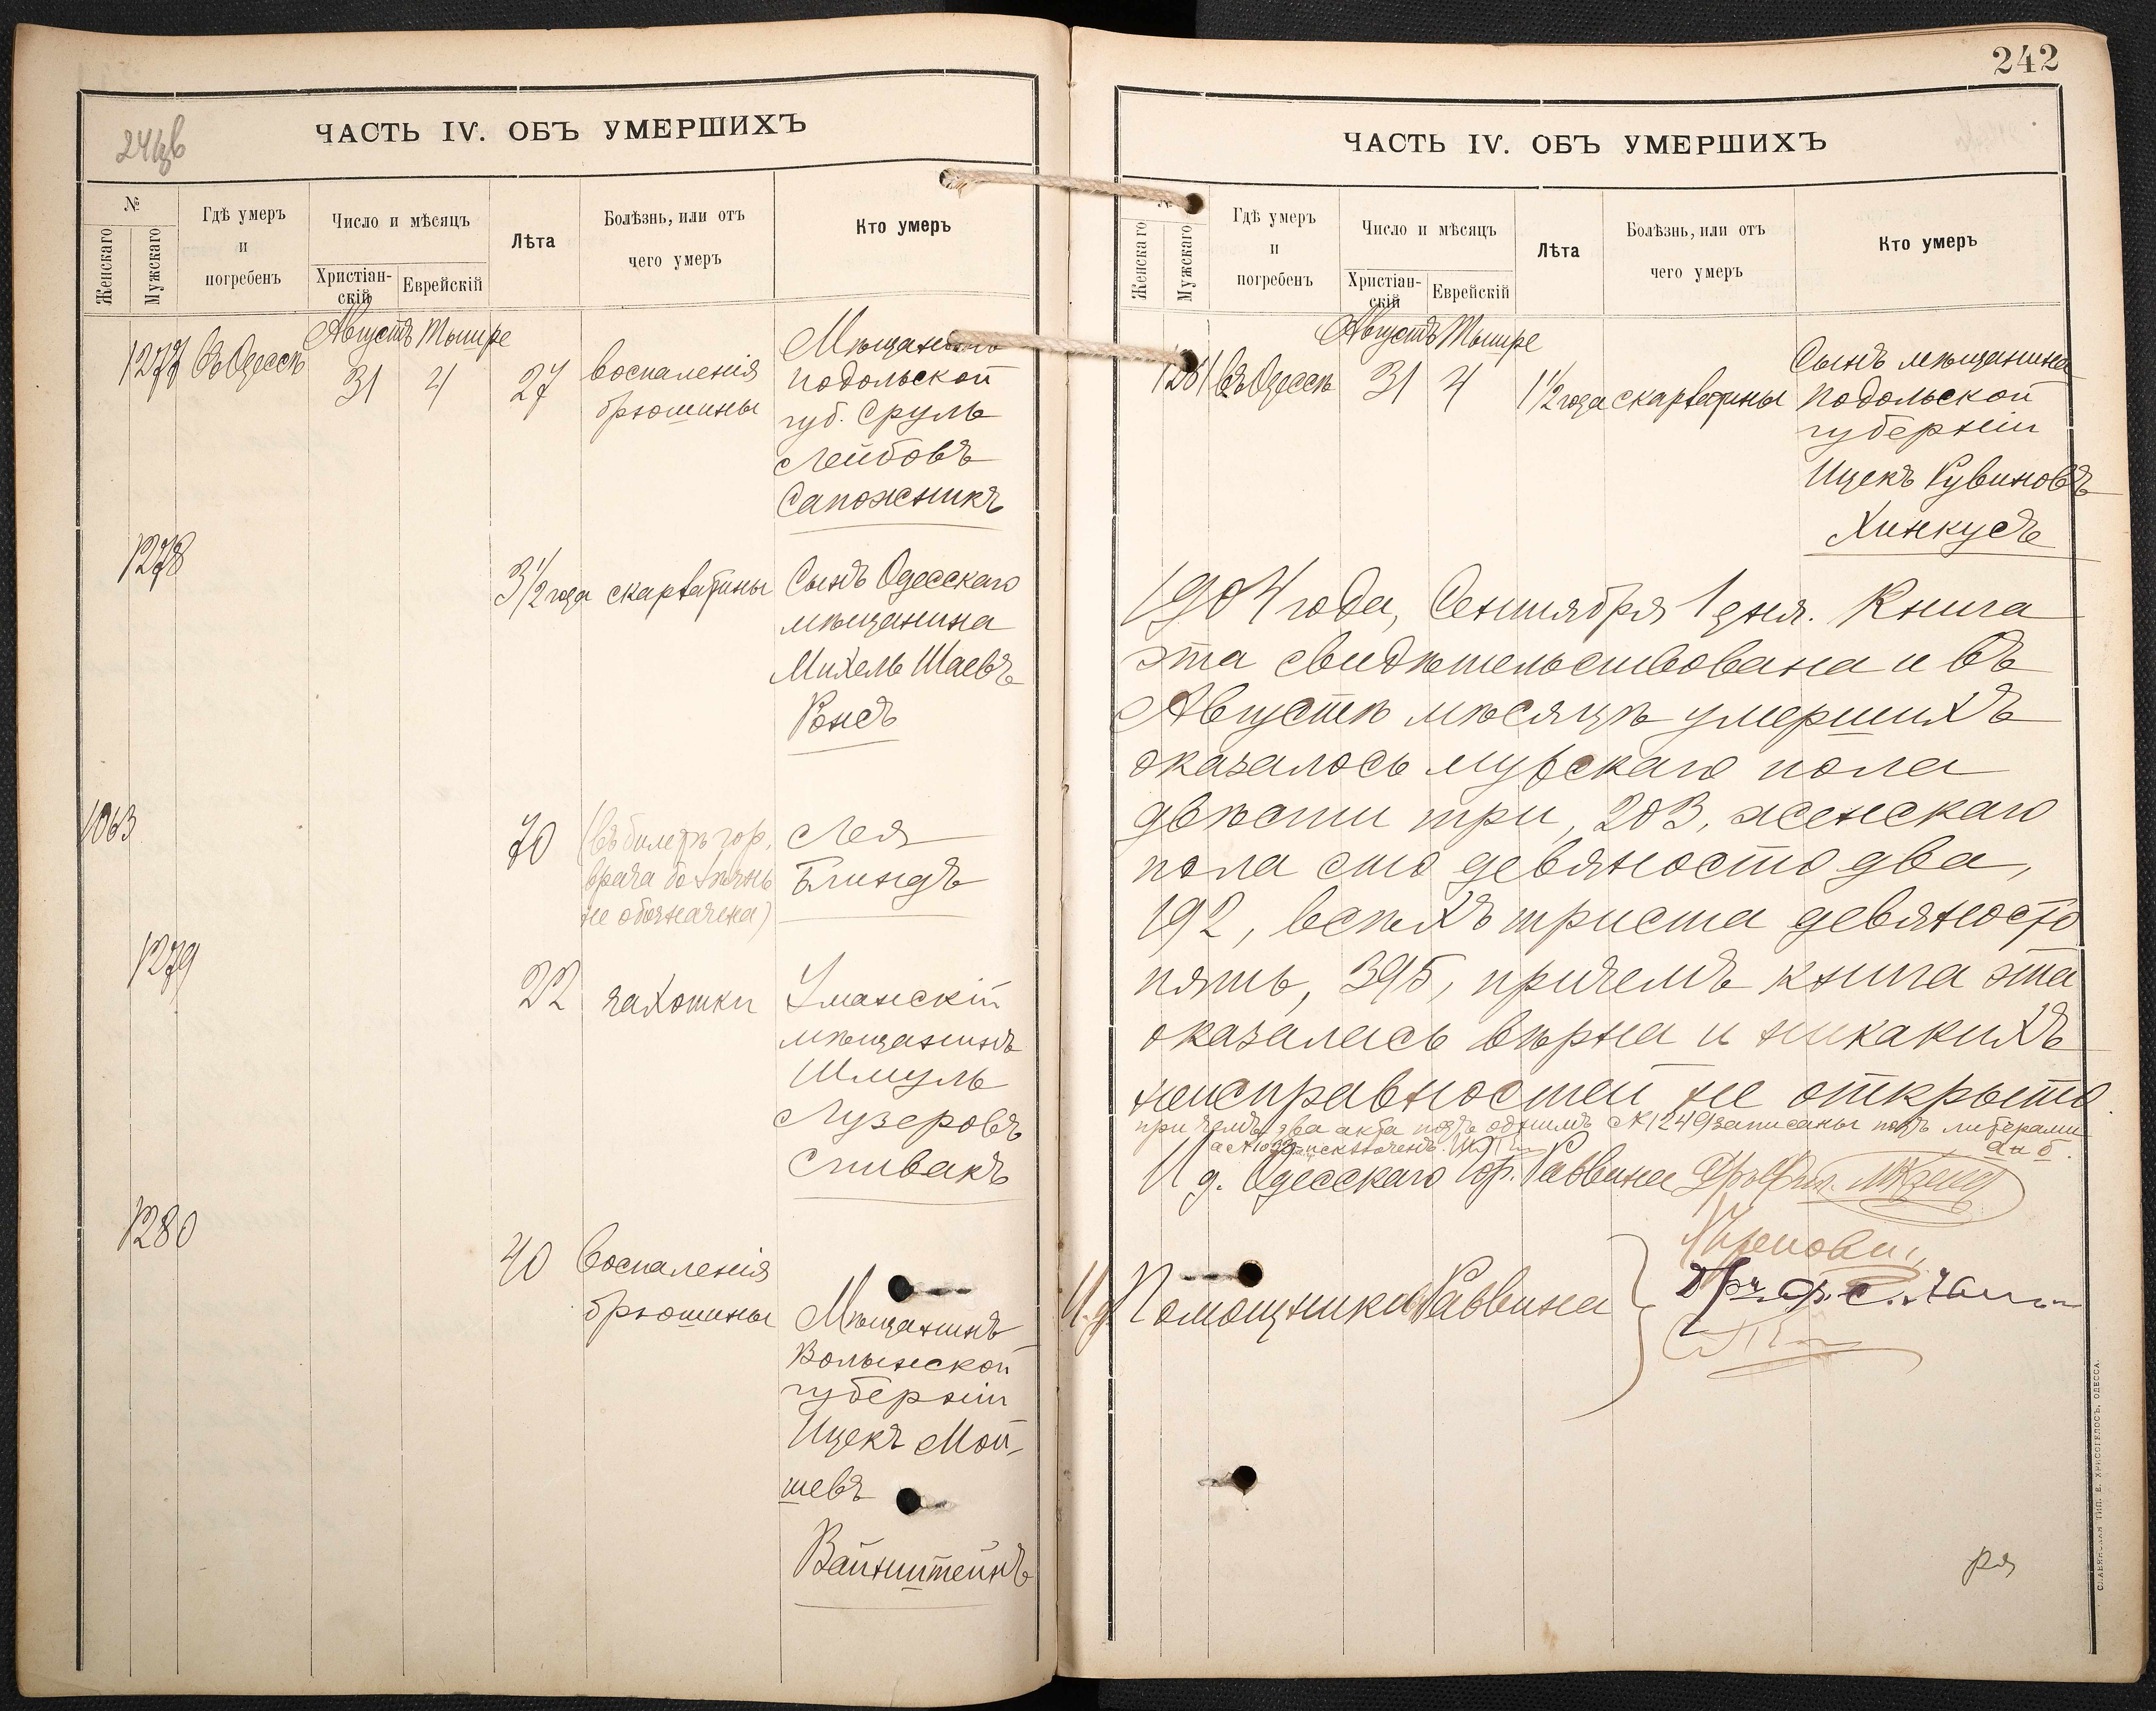 241 об
ЧАСТЬ IV. ОБЪ УМЕРШИХЪ
№
Женскаго
Мужскаго
Гдѣ умеръ
и
погребенъ
Число и мѣсяцъ
Христіан-
скій
Еврейскій
Лѣта
Болѣзнь, или отъ
чего умеръ
Кто умеръ
Августъ Тышре
1277 Въ Одессѣ 31 4 27 воспаленія Мѣщанинъ
брюшины подольской
губ. Сруль
Лейбовъ
Сапожникъ
1278 3 1/2 года скарлатины Сынъ Одесскаго
мѣщанина
Михель Шаевъ
1063 70 (въ билетѣ гор. Лея
врача болѣзнь Блиндъ
не обозначена)
1279 22 чахотки Уманскій
мѣщанинъ
Шмуль
Лузеровъ
Спивакъ
1280 40 воспаленія
брюшины Мѣщанинъ
Волынской
губерніи
Ицекъ Мой-
шевъ
Вайнштейнъ
242
ЧАСТЬ IV. ОБЪ УМЕРШИХЪ
№
Женскаго
Мужскаго
Гдѣ умеръ
и
погребенъ
Число и мѣсяцъ
Христіан-
скій
Еврейскій
Лѣта
Болѣзнь, или отъ
чего умеръ
Кто умеръ
Августъ Тышре
1281 Въ Одессѣ 31 4 1 1/2 года скарлатины Сынъ мѣщанина
подольской
губерніи
Ицекъ Рувиновъ
Хинкусъ
1904 года, Сентября 1 дня. Книга
эта свидѣтельствована и въ
Августѣ мѣсяцѣ умершихъ
оказалось мужскаго пола
двѣсти три, 203, женскаго
пола сто девяносто два,
192, всѣхъ триста девяносто
пять, 395, причемъ книга эта
оказалась вѣрна и никакихъ
неисправностей не открыто.
при чемъ два акта подъ однимъ №1249 записаны подъ литерами
а и б.
И д. Одесскаго Гор. Раввина
И. д. Помощники Раввина
СЛАВЯНСКАЯ ТИП. Е. ХРИСОГЕЛОСЪ, ОДЕССА.